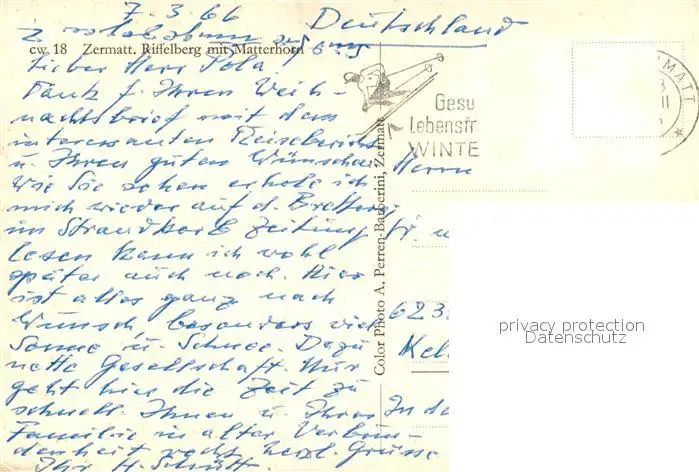 7.3.66
Deutschland
cw 18 Zermatt. Riffelberg mit Matterhorn
Lieber Herr Pola
Dank f. Ihren Weih-
nachtsbrief mit dem
interessanten Reisebericht
u. Ihren guten Wünschen.
Wie Sie sehen erhole ich
mich wieder auf d. Brettern
im Strandkorb Zeitung
lesen kann ich wohl
später auch noch. Hier
ist alles ganz nach
Wunsch besonders viel
Sonne u. Schnee. Dazu
nette Gesellschaft. Nur
geht hier die Zeit zu
schnell. Ihnen u. Ihrer
Familie in alter Verbun-
denheit recht herzl. Grüsse
Ihr H. Schütt.
Color Photo A. Perren-Barberini, Zermatt
Gesu
Lebensfr
WINTE
MATT
Herrn
623
Kel
In d
privacy protection
Datenschutz